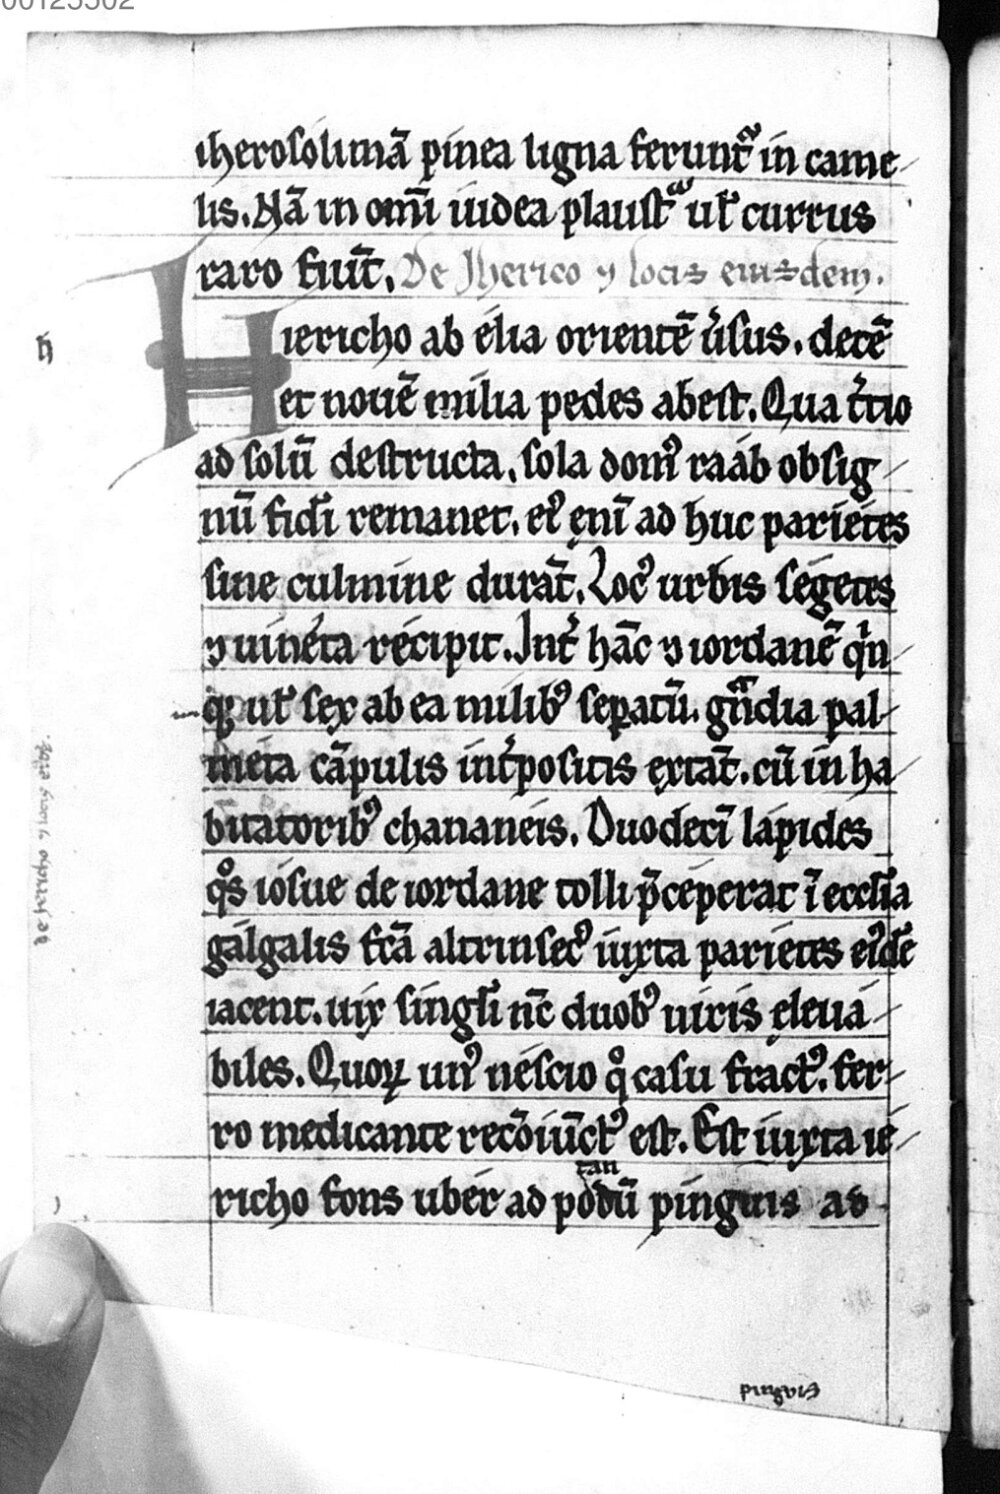 00125502
iherosolimā pinea ligna feruntᷓ in came
lis. Nā in om̄i iudea plaustᷓ ul̵ currus
raro fuit̄. De Jherico ⁊ locis eiusdem.
Hiericho ab elia orientē ũsus. decē
et nouē milia pedes abest. Qua t̓cio
ad solū destructa. sola domꝰ raab ob sig
nū fidei remanet. eiꝰ eni̅ ad huc parietes
sine culmine durāt. Locꝰ urbis segetes
⁊ uineta recipit. Int̓ hāc ⁊ iordanē qⁱn
qꝫ ul̵ sex ab ea milibꝰ sepatū. gᷓndia pal
meta cāpulis int̓positis extāt. cū in ha
bitatoribꝰ chananeis. Duodeci̅ lapides
qͦs iosue de iordane tolli p̄ceperat i̅ eccl̵ia
galgalis fc̄a altrinsecꝰ iuxta parietes eiꝰdē
iacent. uix singl̵i nc̄ duobꝰ uiris eleua
biles. Quoꝝ unꝰ nescio qͦ casu fractꝰ. fer
ro medicante recōiūctꝰ est. Est iuxta ie
richo fons uber ad po
tan
dū pinguis ad
pinguis
h
de Jericho ⁊ locis eiꝰdē.